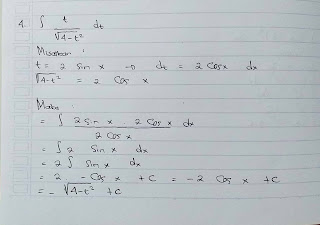 4. ∫ t / √4-t² dt
Misalkan :
t = 2 sin x → dt = 2 cos x dx
√4-t² = 2 cos x
Maka :
= ∫ 2 sin x 2 cos x / 2 cos x dx
= ∫ 2 sin x dx
= 2 ∫ sin x dx
= 2 - cos x + c = -2 cos x + c
= - √4-t² + c